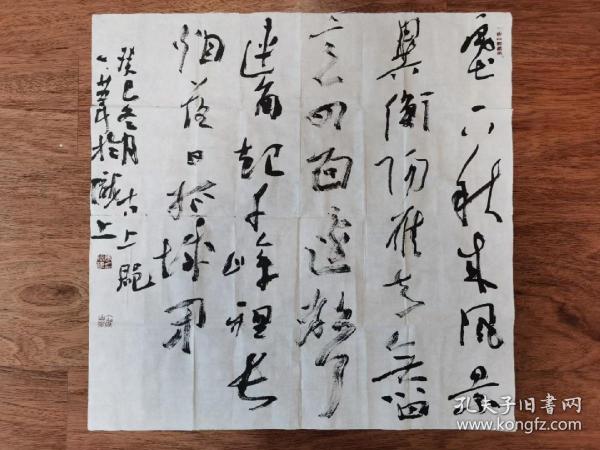 塞下秋来风景
異衡阳雁去無留
意四面邊聲
連角起千嶂裡长
烟落日孤城閉
癸巳冬月
於隴上
孔夫子旧书网
www.kongfz.com